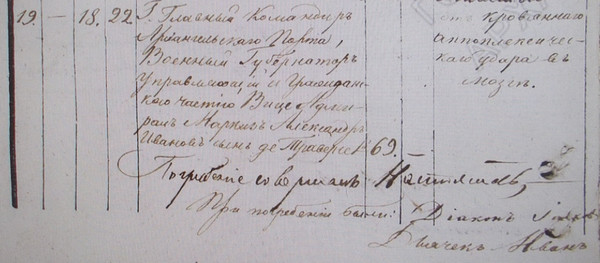 19. — 18. 22. Г. Главный Командиръ
Архангельскаго Порта,
Военный Губернаторъ
управляющій и Граждан-
скою частію Вице Адми-
ралъ Маркизъ Александръ
Ивановъ сынъ де Траверсе 69. –
отъ кровянаго
апоплексичес-
каго удара въ
мозгъ.
Погребеніе совершалъ Настоятель,
При погребеніи были: Діаконъ
Дьячекъ Иванъ